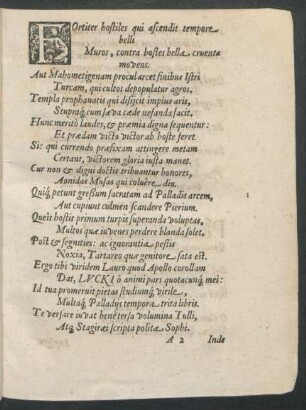 FOrtiter hostiles qui ascendit tempore
belli
Muros, contra hostes bella cruenta
movens.
Aut Mahometigenam procul arcet finibus Istri
Turcam, qui cultos depopulatur agros,
Templa prophanatis qui disijcit impius aris,
Stupraq́ cum sæva cæde nefanda facit,
Hunc meritò laudes, & præmia digna sequuntur:
Et prædam victo victor ab hoste feret.
Sic qui currendo præfixam attingere metam
Certant, victorem gloria iusta manet.
Cur non & digni doctis tribuantur honores,
Aonidas Musas qui coluêre diu.
Quiq́ petunt gressum sacratam ad Palladis arcem,
Aut cupiunt culmen scandere Pierium.
Queis hostis primum turpis superanda voluptas,
Multos quæ iuvenes perdere blanda solet.
Póst & segnities: ac ignorantia pestis
Noxia, Tartareo quæ genitore sata est.
Ergo tibi viridem Lauro quod Apollo corollam
Dat, LVCKI ô animi pars quotacunq́ mei:
Id tua promeruit pietas studiumq́ virile,
Multaq́ Palladijs tempora trita libris.
Te versare iuvat benè tersa volumina Tulli,
Atq́ Stagiræi scripta polita Sophi.
A 2 Inde